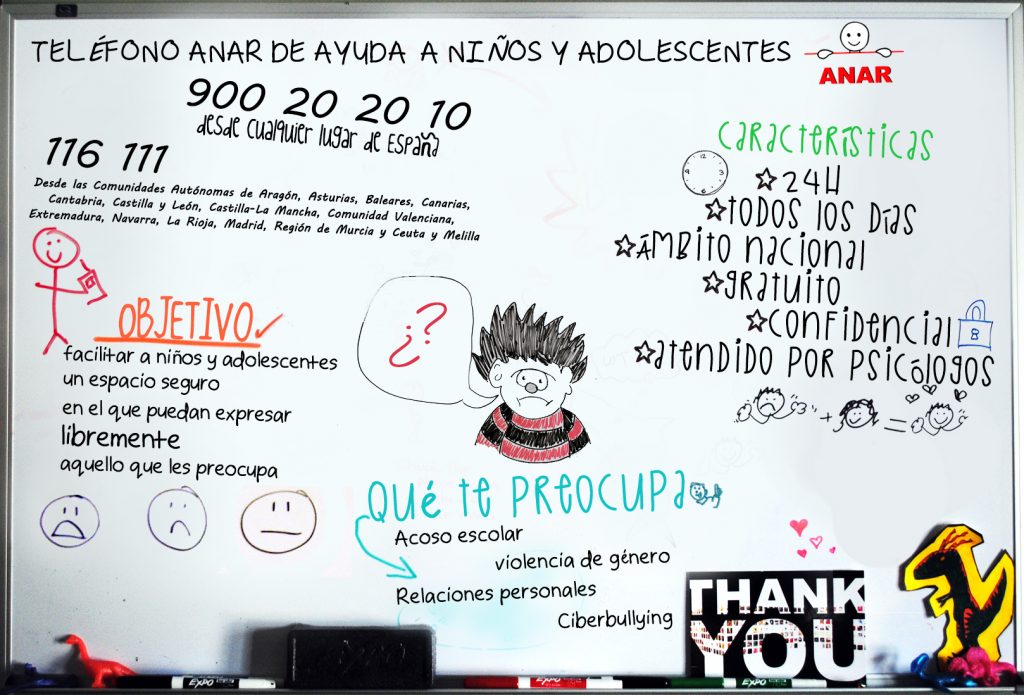 TELÉFONO ANAR DE AYUDA A NIÑOS Y ADOLESCENTES
ANAR
900 20 20 10
desde cualquier lugar de España
116 111
Desde las Comunidades Autónomas de Aragón, Asturias, Baleares, Canarias,
Cantabria, Castilla y León, Castilla-La Mancha, Comunidad Valenciana,
Extremadura, Navarra, La Rioja, Madrid, Región de Murcia y Ceuta y Melilla
características
24H
todos los días
ámbito nacional
gratuito
confidencial
atendido por psicólogos
OBJETIVO
facilitar a niños y adolescentes
un espacio seguro
en el que puedan expresar
libremente
aquello que les preocupa
¿?
Qué te preocupa
Acoso escolar
violencia de género
Relaciones personales
Ciberbullying
THANK
YOU
EXPO
EXPO
EXPO